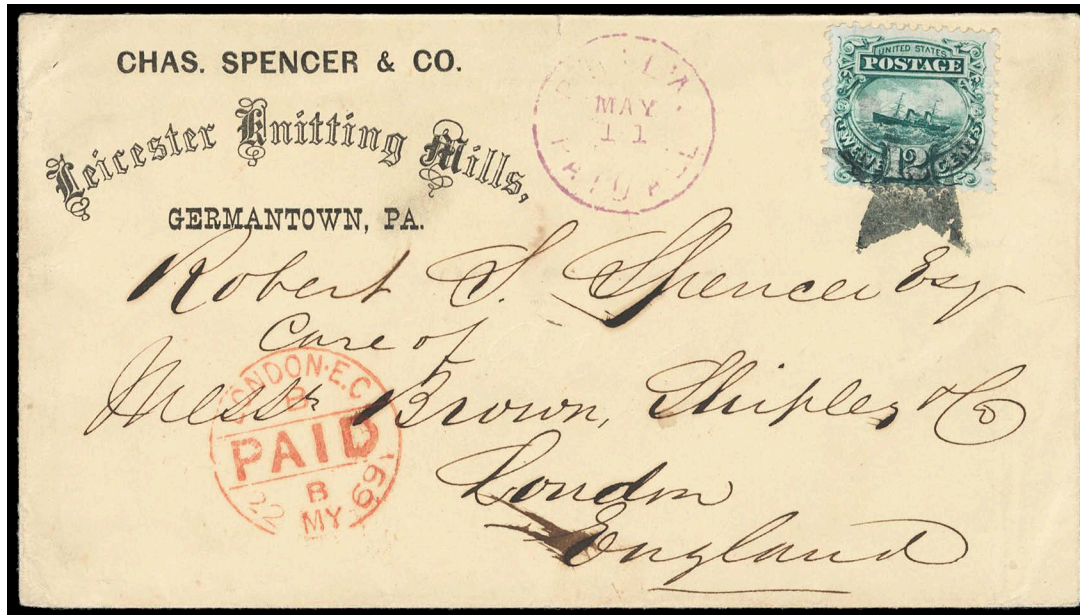 CHAS. SPENCER & CO.
Leicester Knitting Mills,
GERMANTOWN, PA.
PHILA.
MAY
11
PAID
UNITED STATES
POSTAGE
TWELVE 12 CENTS
Robert S. Spencer Esq
Care of
Messrs Brown, Shipley & Co
London
England
LONDON·E.C
B
PAID
22 B '69
MY